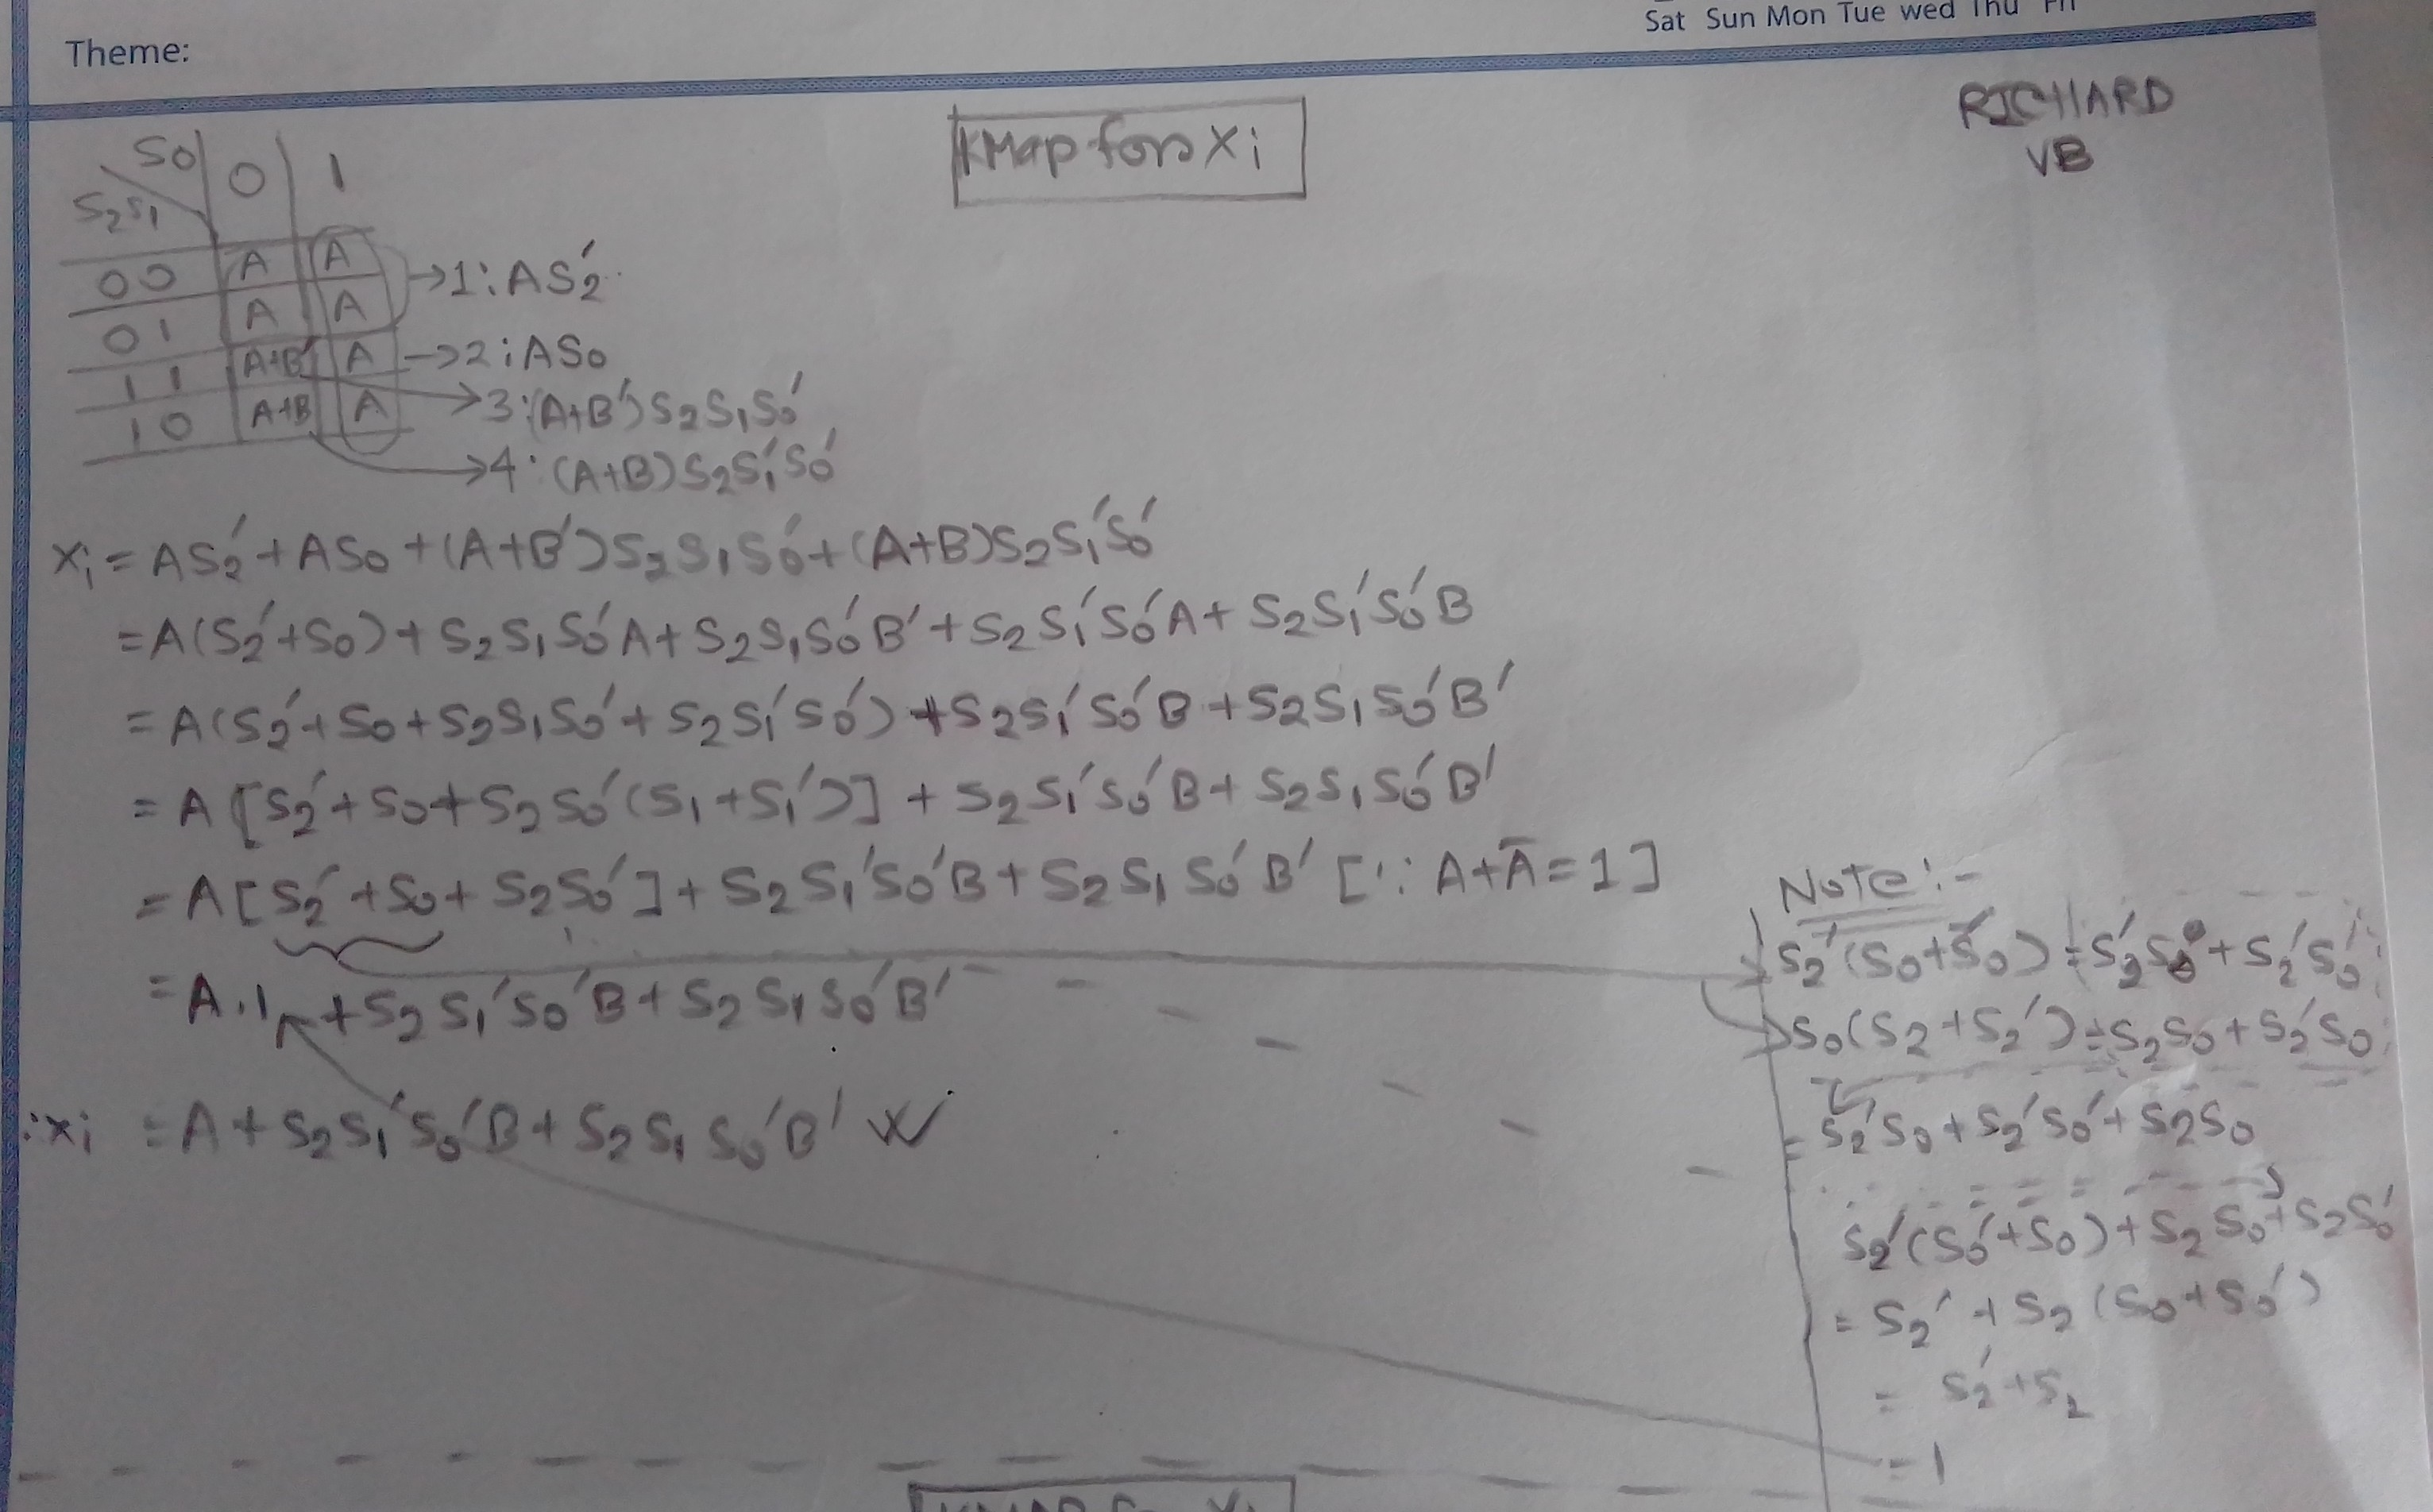 Sat Sun Mon Tue wed Thu Fri
Theme:
RICHARD
VB
KMap for Xi
S0 0 1
S2S1
00 A A →1: AS2'
01 A A
11 A+B' A →2: AS0
→3:(A+B')S2S1S0'
10 A+B A
→4:(A+B)S2S1'S0'
Xi = AS2' + AS0 + (A+B')S2S1S0' + (A+B)S2S1'S0'
= A(S2'+S0) + S2S1S0'A + S2S1S0'B' + S2S1'S0'A + S2S1'S0'B
= A(S2'+S0+S2S1S0'+S2S1'S0') + S2S1'S0'B + S2S1S0'B'
= A[S2'+S0+S2S0'(S1+S1')] + S2S1'S0'B + S2S1S0'B'
= A[S2'+S0+S2S0'] + S2S1'S0'B + S2S1S0'B' [∵ A+Ā=1]
= A.1 + S2S1'S0'B + S2S1S0'B'
∴Xi = A + S2S1'S0'B + S2S1S0'B'
Note:-
S2'(S0+S̄0) = S2'S0 + S2'S0'
S0(S2+S2') = S2S0 + S2'S0
= S2'S0 + S2'S0' + S2S0
S2'(S0'+S0) + S2S0 + S2S0'
= S2' + S2(S0+S0')
= S2' + S2
= 1